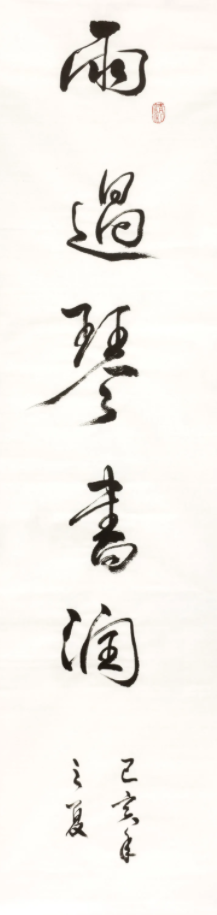 雨過琴書潤
己亥年
之夏